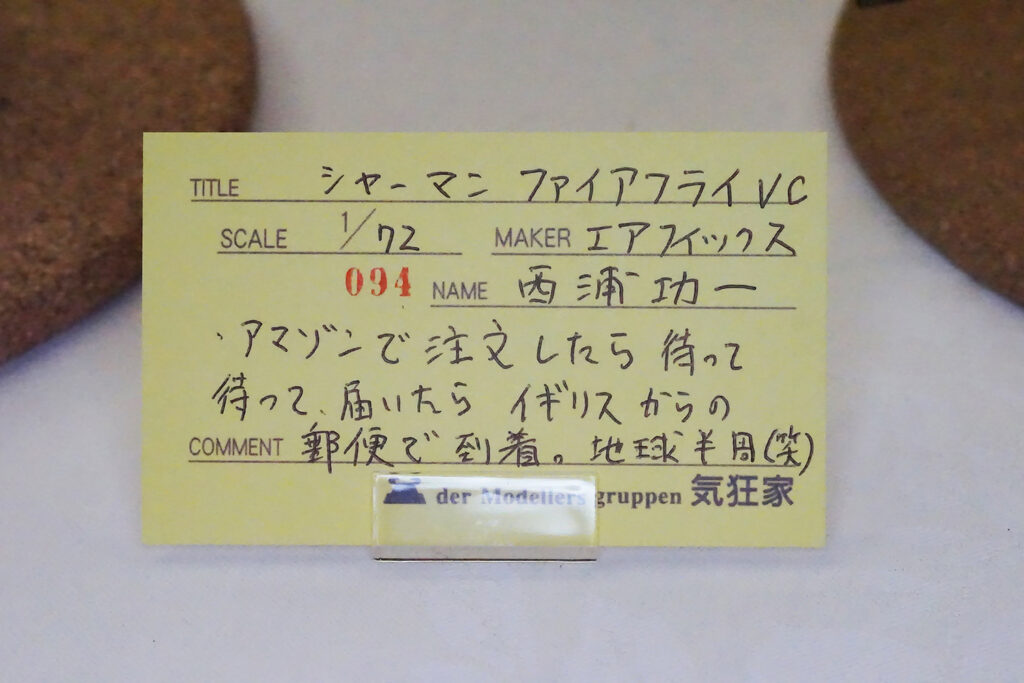 TITLE シャーマン ファイアフライ VC
SCALE 1/72 MAKER エアフィックス
094 NAME 西浦功一
・アマゾンで注文したら待って
待って、届いたら イギリスからの
COMMENT 郵便で到着。地球半周(笑)
der Modellers gruppen 気狂家